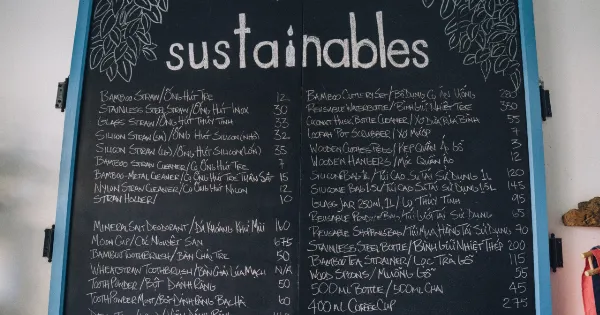 sustainables
Bamboo Straw/Ống Hút Tre 12
Stainless Steel Straw/Ống Hút Inox 30
Glass Straw/Ống Hút Thủy Tinh 33
Silicon Straw (sm)/Ống Hút Silicon (nhỏ) 32
Silicon Straw (lg)/Ống Hút Silicon (lớn) 35
Bamboo Straw Cleaner/Cọ Ống Hút Tre 7
Bamboo-Metal Cleaner/Cọ Ống Hút Tre Thân Sắt 15
Nylon Straw Cleaner/Cọ Ống Hút Nilon 12
Straw Holder/ 10
Mineral Salt Deodorant/Đá Khoáng Khử Mùi 160
Moon Cup/Cốc Nguyệt San 675
Bamboo Toothbrush/Bàn Chải Tre 50
Wheatstraw Toothbrush/Bàn Chải Lúa Mạch N/A
Tooth Powder/Bột Đánh Răng 50
Tooth Powder Mint/Bột Đánh Răng Bạc Hà 60
Bamboo Cutlery Set/Bộ Dụng Cụ Ăn Uống 280
Reusable Water Bottle/Bình Giữ Nhiệt Tre 350
Coconut Husk Bottle Cleaner/Xơ Dừa Rửa Bình 55
Loofah Pot Scrubber/Xơ Mướp 7
Wooden Clothes Pegs/Kẹp Quần Áo Gỗ 3
Wooden Hangers/Móc Quần Áo 12
Silicone Bag 1L/Túi Cao Su Tái Sử Dụng 1L 120
Silicone Bag 1.5L/Túi Cao Su Tái Sử Dụng 1.5L 145
Glass Jar 250ml, 1L/Lọ Thủy Tinh 95
Reusable Produce Bag/Túi Lưới Tái Sử Dụng 65
Reusable Shopping Bag/Túi Mua Hàng Tái Sử Dụng 70
Stainless Steel Bottle/Bình Giữ Nhiệt Thép 200
Bamboo Tea Strainer/Lọc Trà Gỗ 115
Wood Spoons/Muỗng Gỗ 55
500ml Bottle/500ml Chai 45
400ml Coffee Cup 275